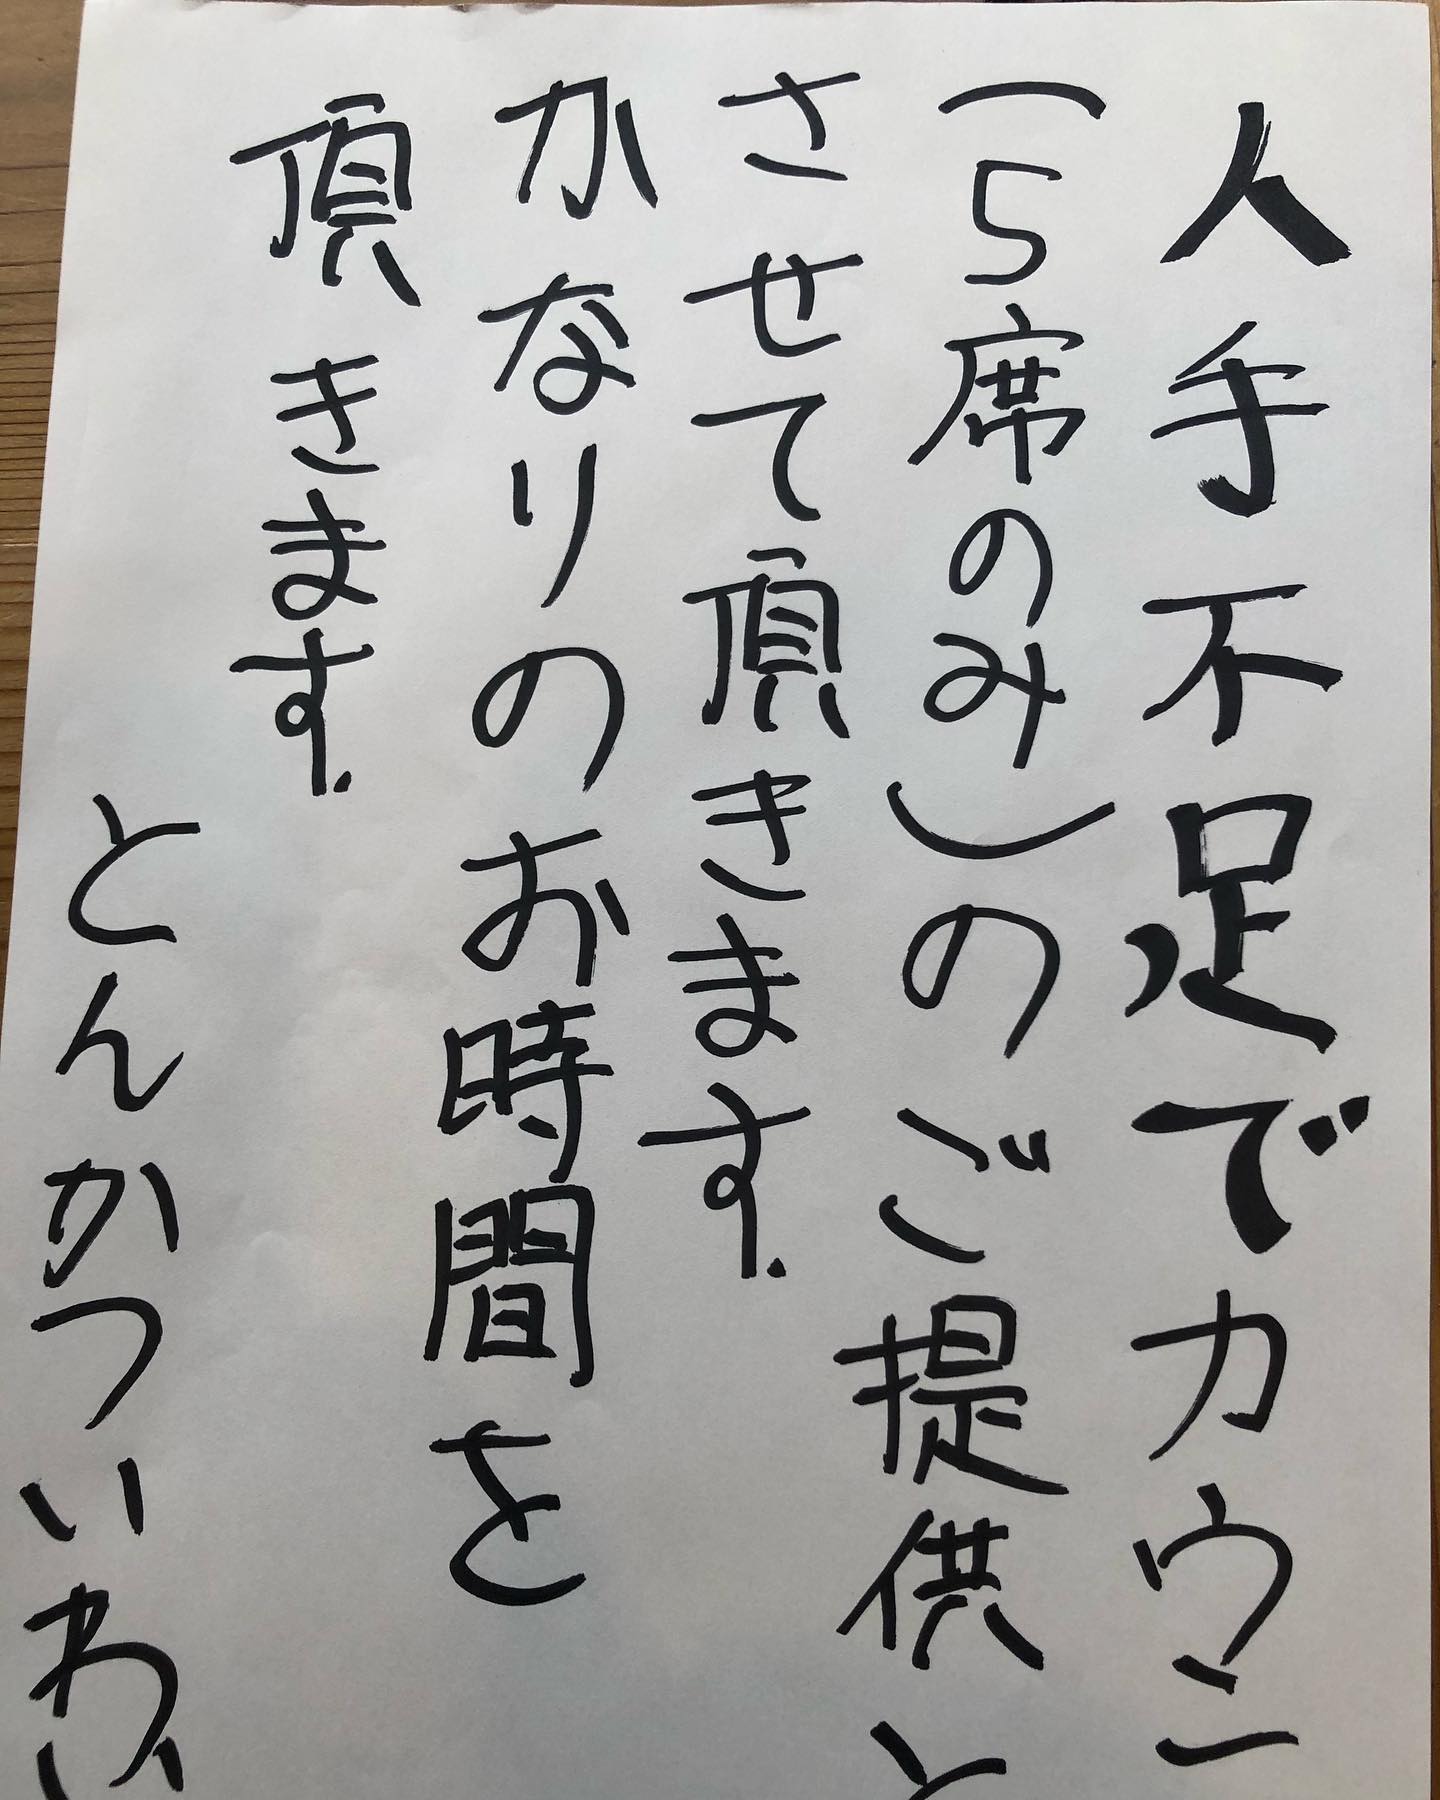 人手不足でカウン
(5席のみ)のご提供と
させて頂きます.
かなりのお時間を
頂きます.
とんかついわい